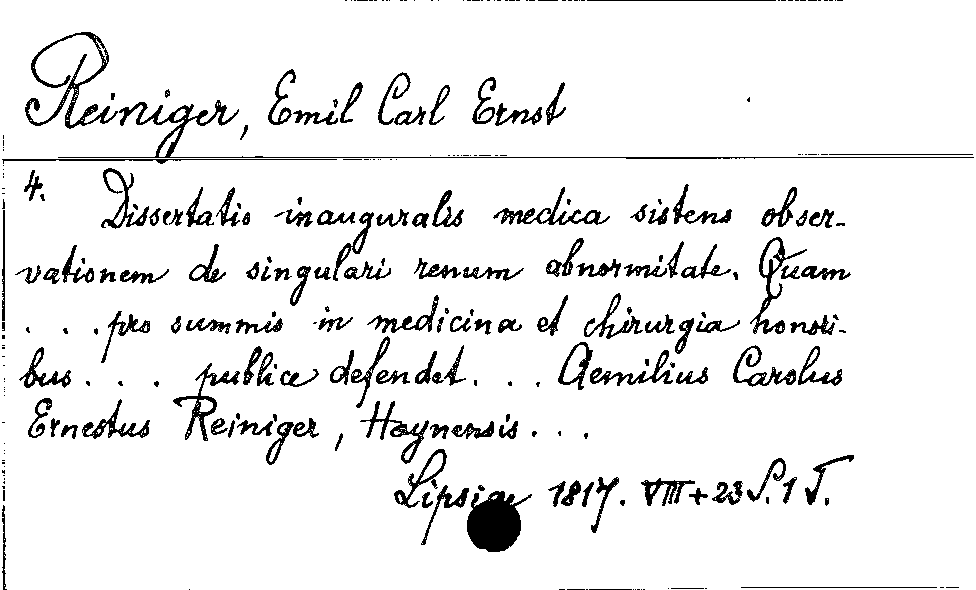 Reiniger, Emil Carl Ernst
4. Dissertatio inauguralis medica sistens obser-
vationem de singulari renum abnormitate. Quam
. . . pro summis in medicina et chirurgia honori-
bus . . . publice defendet . . . Aemilius Carolus
Ernestus Reiniger, Haynensis . . .
Lipsiae 1817. VIII + 23 S. 1 T.